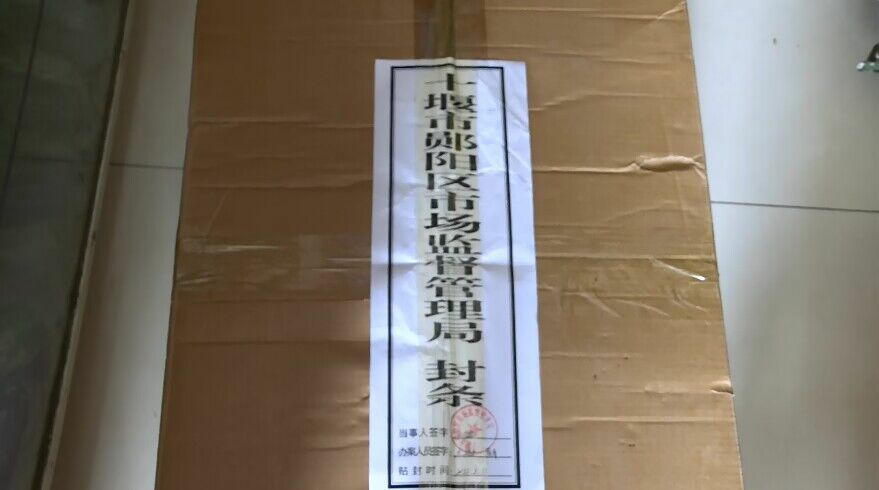 十堰市郧阳区市场监督管理局 封条
当事人签字
办案人员签字
贴封时间